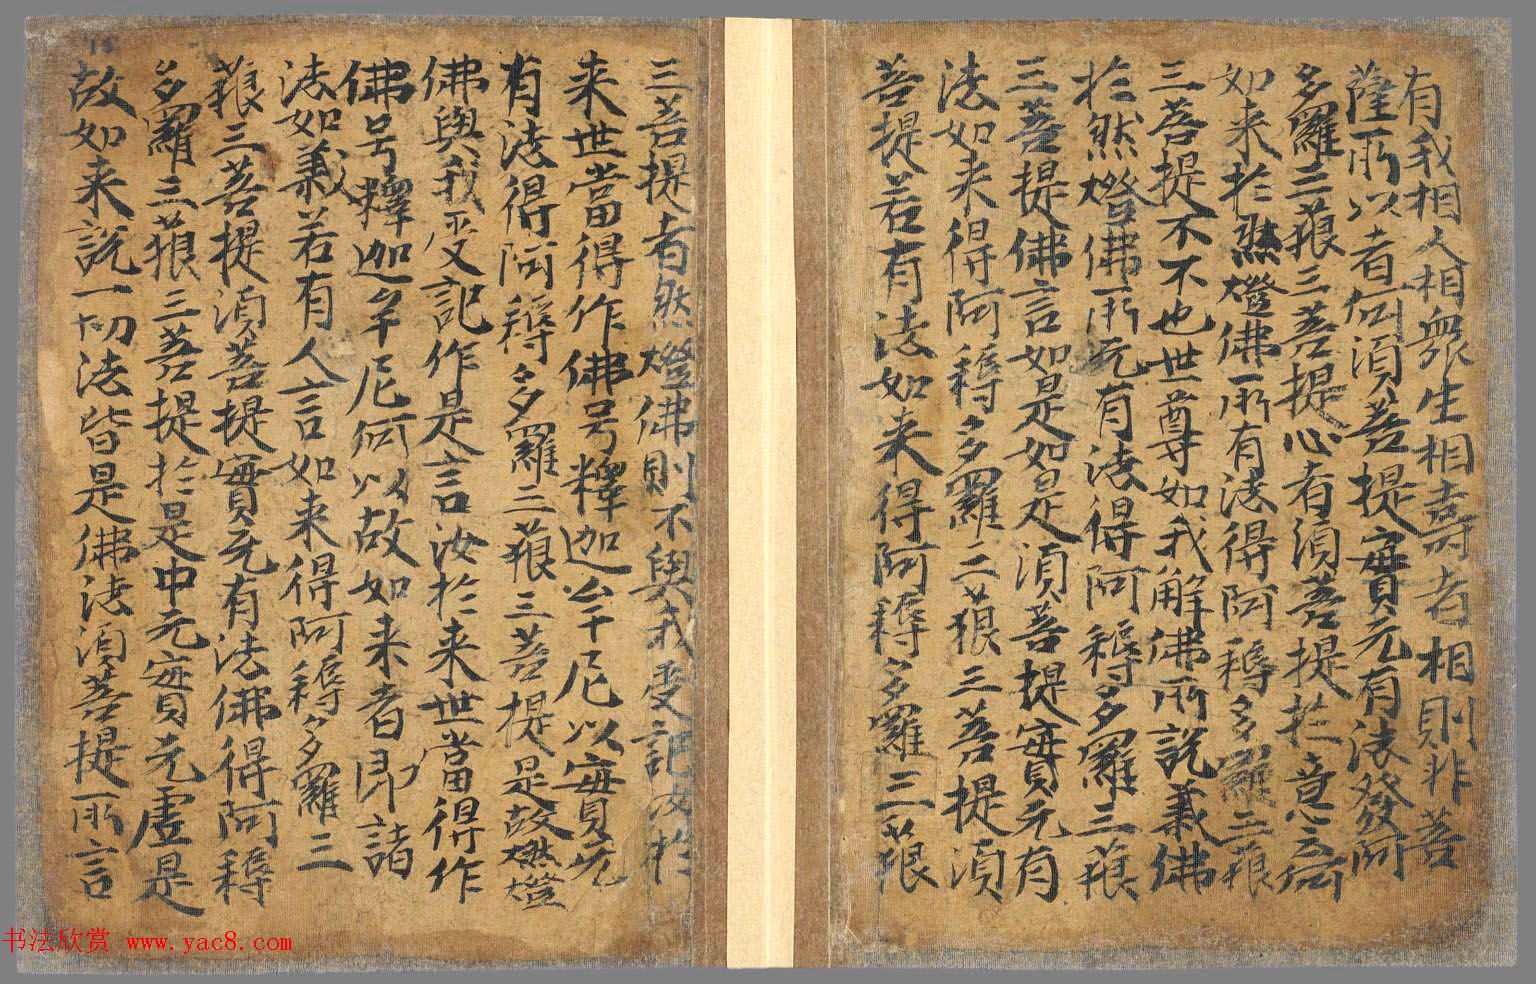 有我相人相衆生相壽者相則非菩
薩所以者何須菩提實无有法發阿
多羅三藐三菩提心者須菩提於意云何
如来於然燈佛所有法得阿耨多羅三藐
三菩提不不也世尊如我解佛所說義佛
於然燈佛所无有法得阿耨多羅三藐
三菩提佛言如是如是須菩提實无有
法如来得阿耨多羅三藐三菩提須
菩提若有法如来得阿耨多羅三藐
三菩提者然燈佛則不與我受記汝於
来世當得作佛号釋迦牟尼以實无
有法得阿耨多羅三藐三菩提是故燃燈
佛與我受記作是言汝於来世當得作
佛号釋迦牟尼何以故如来者即諸
法如義若有人言如来得阿耨多羅三
藐三菩提須菩提實无有法佛得阿耨
多羅三藐三菩提於是中无實无虛是
故如来說一切法皆是佛法須菩提所言
书法欣赏 www.yac8.com